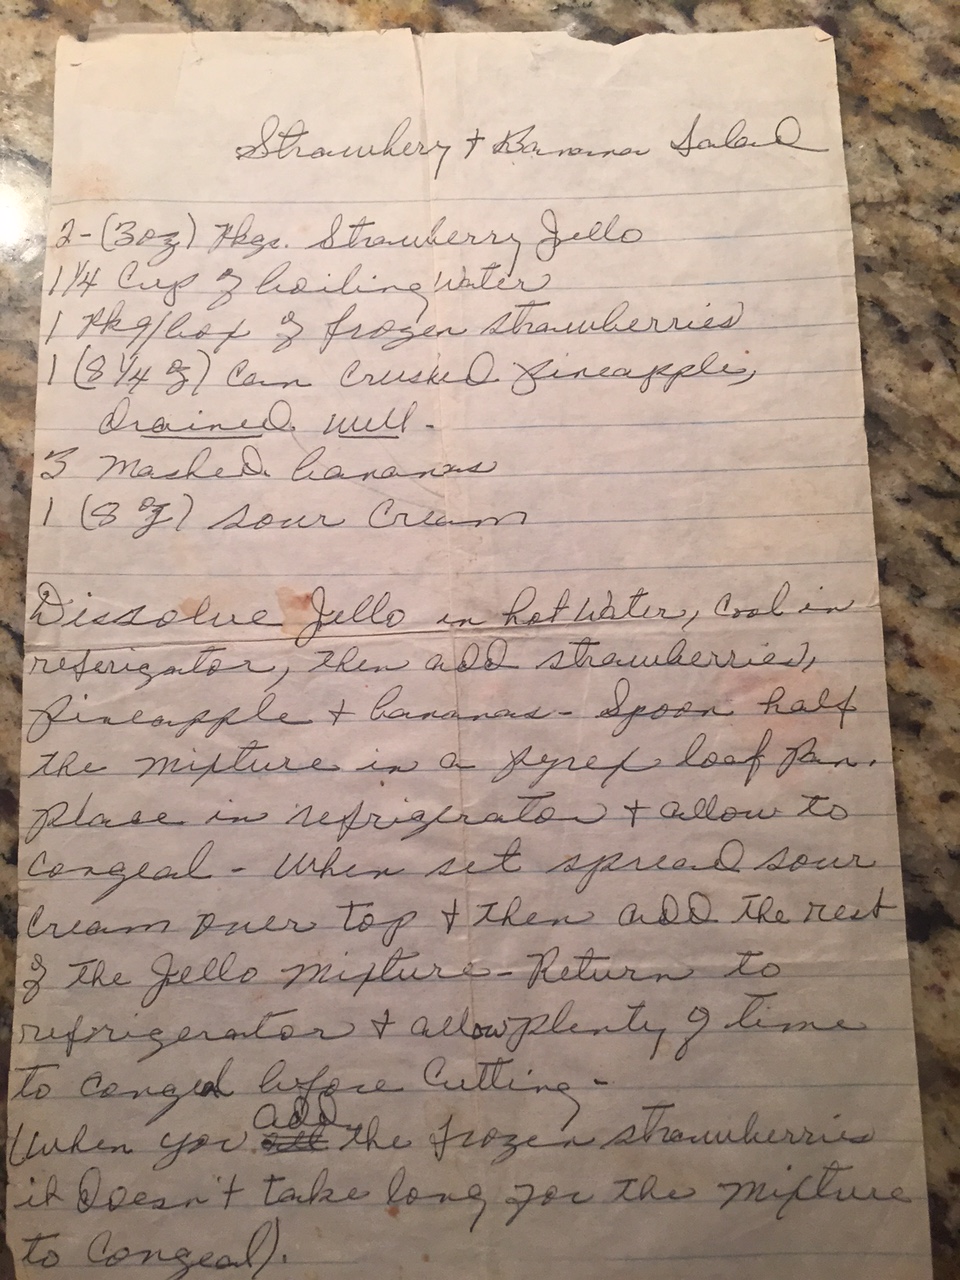 Strawbery + Banana Salad
2-(3oz) Pkgs. Strawberry Jello
1 1/4 Cup of boiling water
1 Pkg/box of frozen strawberries
1 (8 1/4 oz) can crushed pineapple,
drained well -
3 mashed bananas
1 (8 oz) sour cream
Dissolve Jello in hot water, cool in
referigator, then add strawberries,
pineapple + bananas - Spoon half
the mixture in a pyrex loaf pan.
Place in refrigerator + allow to
congeal - When set spread sour
cream over top + then add the rest
of the Jello mixture - Return to
refrigerator + allow plenty of time
to congeal before cutting -
(When you add the frozen strawberries
it doesn't take long for the mixture
to congeal).